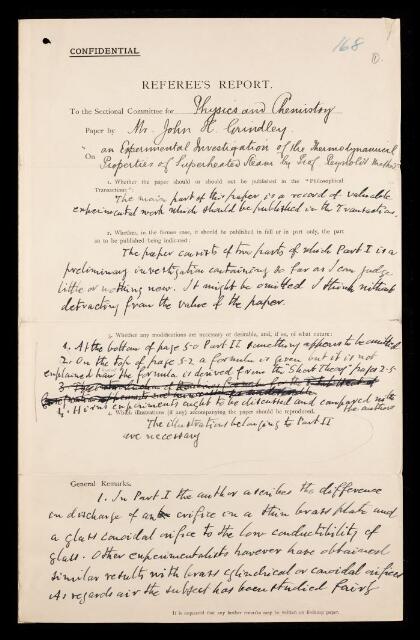 CONFIDENTIAL
168
①.
REFEREE'S REPORT.
To the Sectional Committee for Physics and Chemistry
Paper by Mr. John H. Grindley.
On "an Experimental Investigation of the Thermodynamical
Properties of Superheated Steam by Prof Reynolds' Method"
1. Whether the paper should or should not be published in the "Philosophical
Transactions":
The main part of this paper is a record of valuable
experimental work which should be published in the Transactions.
2. Whether, in the former case, it should be published in full or in part only, the part
so to be published being indicated:
The paper consists of two parts of which Part I is a
preliminary investigation containing so far as I can judge
little or nothing new. It might be omitted I think without
detracting from the value of the paper.
3. Whether any modifications are necessary or desirable, and, if so, of what nature:
1. At the bottom of page 50 Part II something appears to be omitted
2. On the top of page 52 a formula is given but it is not
explained how the formula is derived from the "Short Theory" pages 2-5
3.
4. Hirns experiments ought to be discussed and compared with
the authors
4. Which illustrations (if any) accompanying the paper should be reproduced.
The illustrations belonging to Part II
are necessary
General Remarks.
1. In Part I the author ascribes the difference
in discharge of an orifice in a thin brass plate and
a glass conoidal orifice to the low conductibility of
glass. Other experimentalists however have obtained
similar results with brass cylindrical or conoidal orifices
As regards air the subject has been studied fairly
It is requested that any further remarks may be written on ordinary paper.